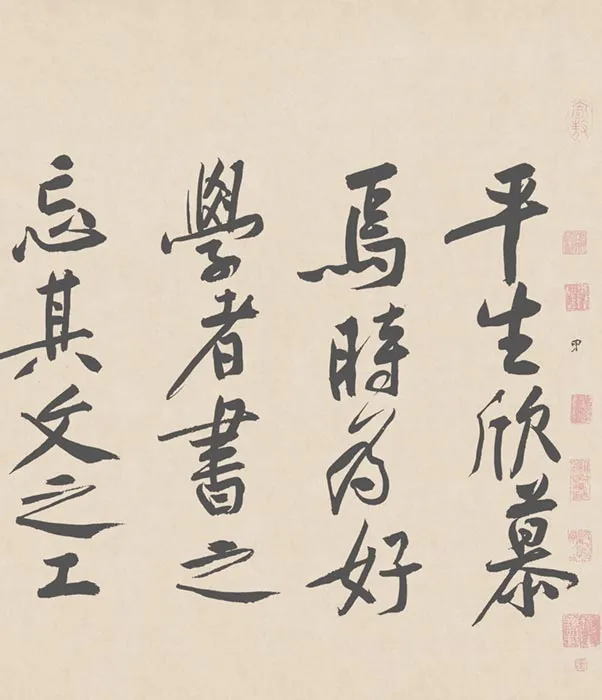 平生欣慕
焉時為好
學者書之
忘其文之工